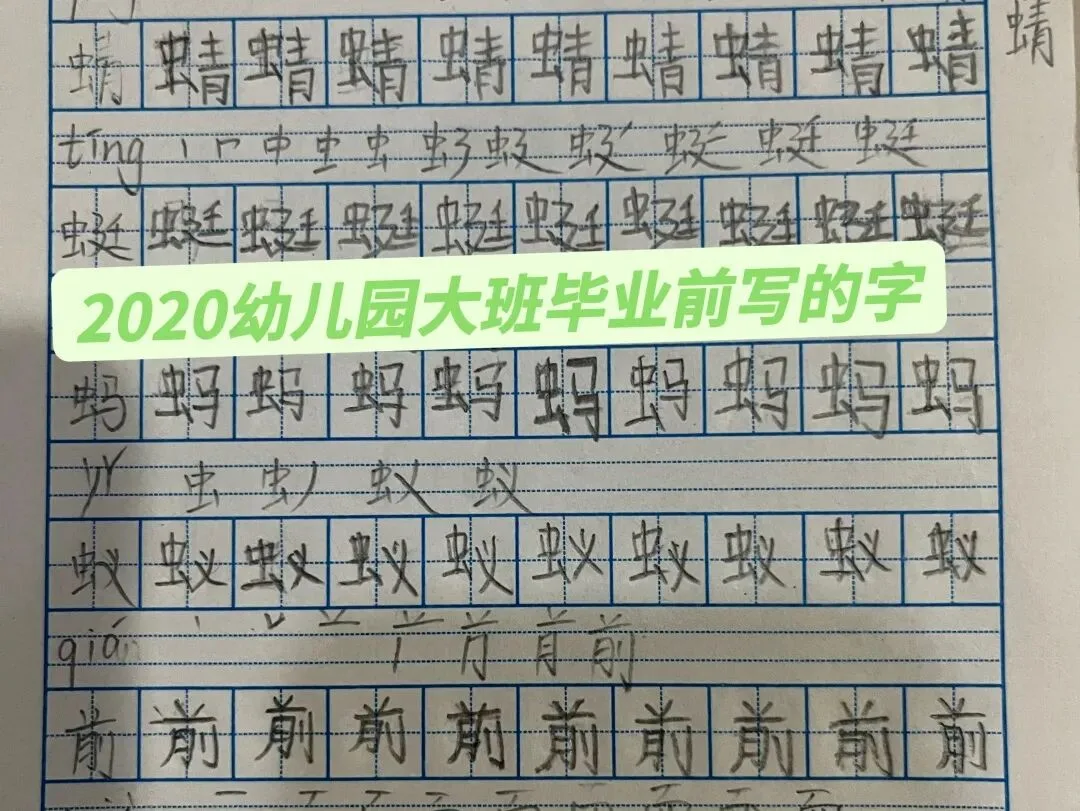 蜻 蜻 蜻 蜻 蜻 蜻 蜻 蜻 蜻 蜻 蜻
tíng 丨 口 中 虫 虫 蜒 蜓 蜓
蜓 蜓 蜓 蜓 蜓 蜓 蜓 蜓 蜓 蜓
2020幼儿园大班毕业前写的字
蚂 蚂 蚂 蚂 蚂 蚂 蚂 蚂 蚂 蚂
yǐ 虫 虫丿 蚁
蚁 蚁 蚁 蚁 蚁 蚁 蚁 蚁 蚁 蚁
qián 丶 丷 䒑 前
前 前 前 前 前 前 前 前 前 前